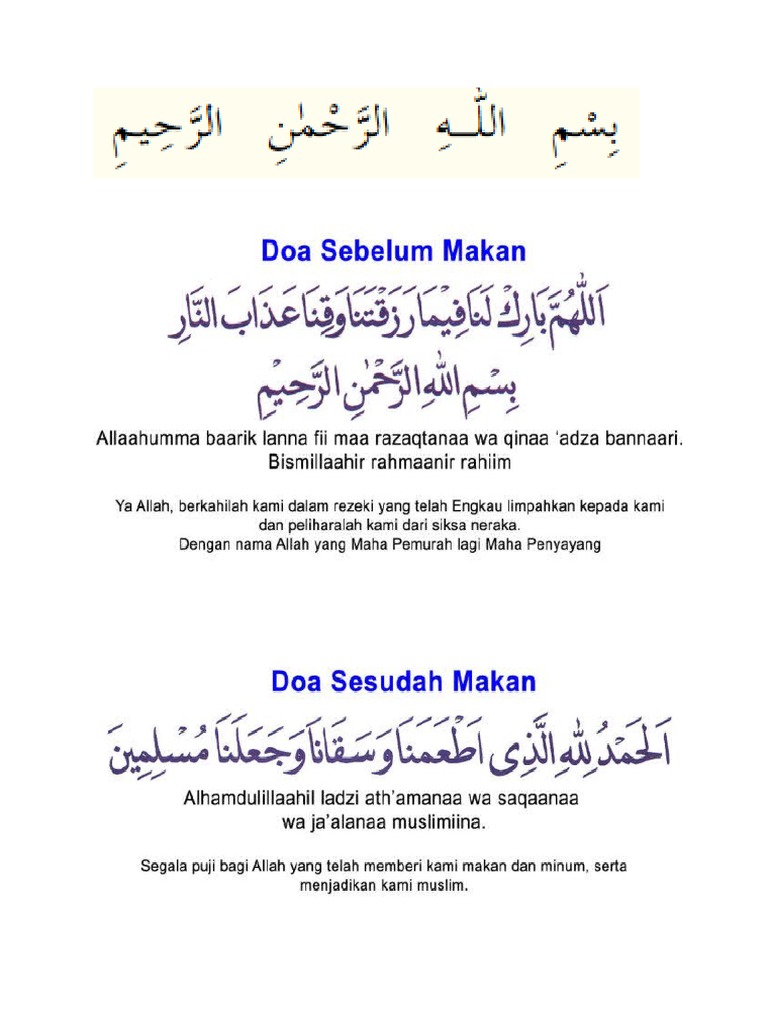 بِسْمِ اللَّـهِ الرَّحْمَٰنِ الرَّحِيمِ
Doa Sebelum Makan
اَللّٰهُمَّ بَارِكْ لَنَا فِيْمَا رَزَقْتَنَا وَقِنَا عَذَابَ النَّارِ
بِسْمِ اللهِ الرَّحْمٰنِ الرَّحِيْمِ
Allaahumma baarik lanna fii maa razaqtanaa wa qinaa ‘adza bannaari.
Bismillaahir rahmaanir rahiim
Ya Allah, berkahilah kami dalam rezeki yang telah Engkau limpahkan kepada kami
dan peliharalah kami dari siksa neraka.
Dengan nama Allah yang Maha Pemurah lagi Maha Penyayang
Doa Sesudah Makan
اَلْحَمْدُ لِلّٰهِ الَّذِى اَطْعَمَنَا وَسَقَانَا وَجَعَلَنَا مُسْلِمِيْنَ
Alhamdulillaahil ladzi ath’amanaa wa saqaanaa
wa ja’alanaa muslimiina.
Segala puji bagi Allah yang telah memberi kami makan dan minum, serta
menjadikan kami muslim.